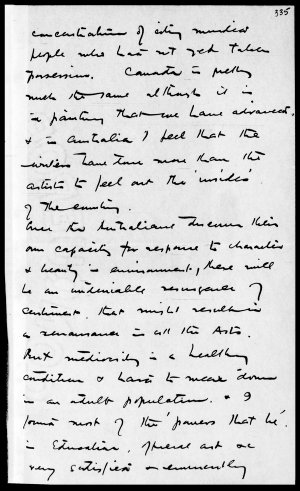 335
concentration of city minded
people who have not yet taken
possession. Canada is pretty
much the same although it is
in painting that we have advanced,
& in Australia I feel that the
writers have done more than the
artists to feel out the 'insides'
of the country.
Once the Australians discover their
own capacity for response to character
& beauty in environment, there will
be an undeniable resurgence of
sentiment that might result in
a renaissance in all the Arts.
But mediocrity is a healthy
condition & hard to wear down
in an adult population. & I
found most of the 'powers that be'
in Education, art &c
very satisfied eminently